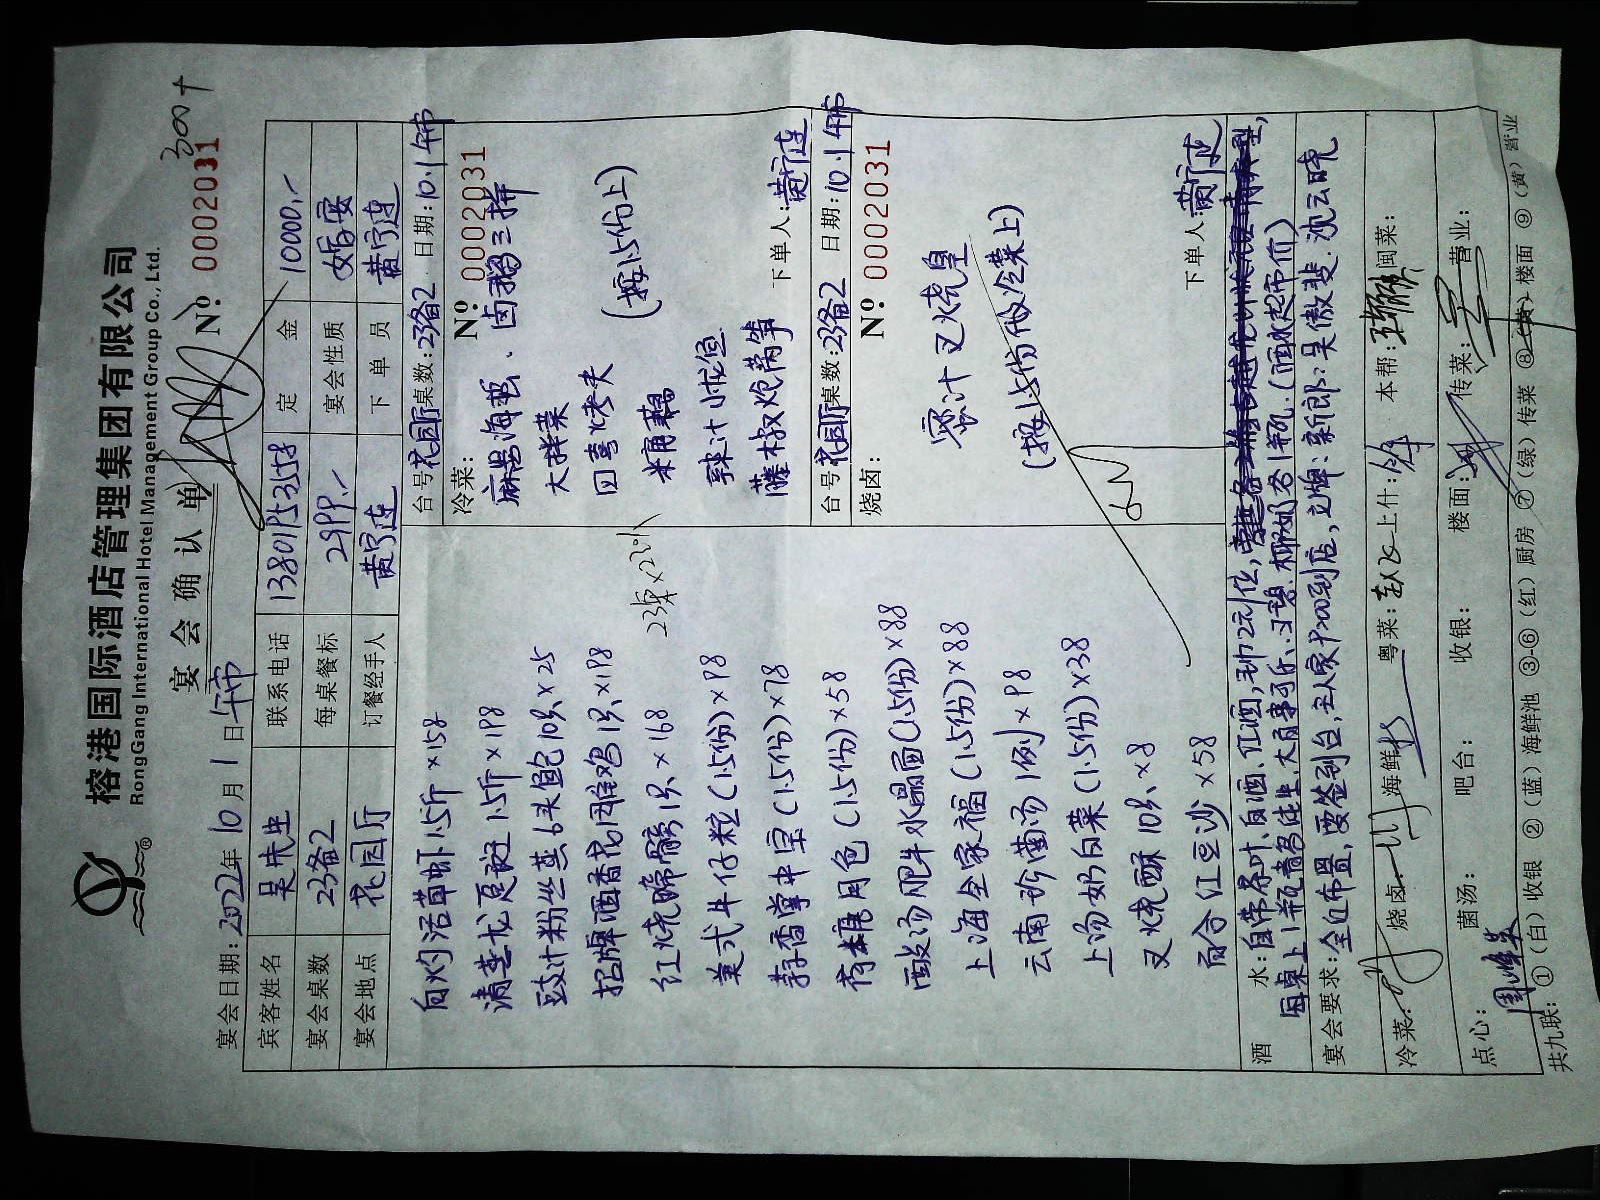 榕港国际酒店管理集团有限公司
RongGang International Hotel Management Group Co., Ltd.
®
宴会确认单
300+
№ 0002031
宴会日期：2022年10月1日午市
宾客姓名 吴先生 联系电话 13801953558 定金 10000.-
宴会桌数 23备2 每桌餐标 2999.- 宴会性质 婚宴
宴会地点 花园厅 订餐经手人 黄宁连 下单员 黄宁连
白灼活草虾1.5斤×158
清蒸龙趸斑1.5斤×198
豉汁粉丝蒸6头鲍10只×25
招牌酒香花雕鸡1只×198
红烧蹄髈1只×168
美式牛仔粒(1.5份)×98
荠香掌中宝(1.5份)×78
荷塘月色(1.5份)×58
酸汤肥牛水晶面(1.5份)×88
上海全家福(1.5份)×88
云南珍菌汤1例×98
上汤奶白菜(1.5份)×38
叉烧酥10只×8
百合红豆沙×58
台号花园厅桌数：23备2 日期：10.1午市
冷菜：
№ 0002031
麻酱海蜇、卤鹅三拼
大拌菜
四喜烤夫
糯藕
辣汁小忙鱼
藤椒炝莴笋
(按1.5份上)
下单人：黄宁连
台号花园厅桌数：23备2 日期：10.1午市
烧卤：
№ 0002031
蜜汁叉烧皇
(按1.5份做冷菜上)
下单人：黄宁连
酒水：自带茶叶、白酒、红酒,
每桌上1瓶青岛佳生、大百事可乐、 椰奶各1瓶.(酒水超市价)
宴会要求：全近布置,要签到台,主人家 到店,立牌：新郎：吴傲斐、沈云晓
冷菜： 烧卤： 海鲜： 粤菜： 上什： 本帮： 闽菜：
点心： 菌汤： 吧台： 收银： 楼面： 传菜： 营业：
共九联：①(白)收银 ②(蓝)海鲜池 ③-⑥(红)厨房 ⑦(绿)传菜 ⑧(黄)楼面 ⑨(黄)营业